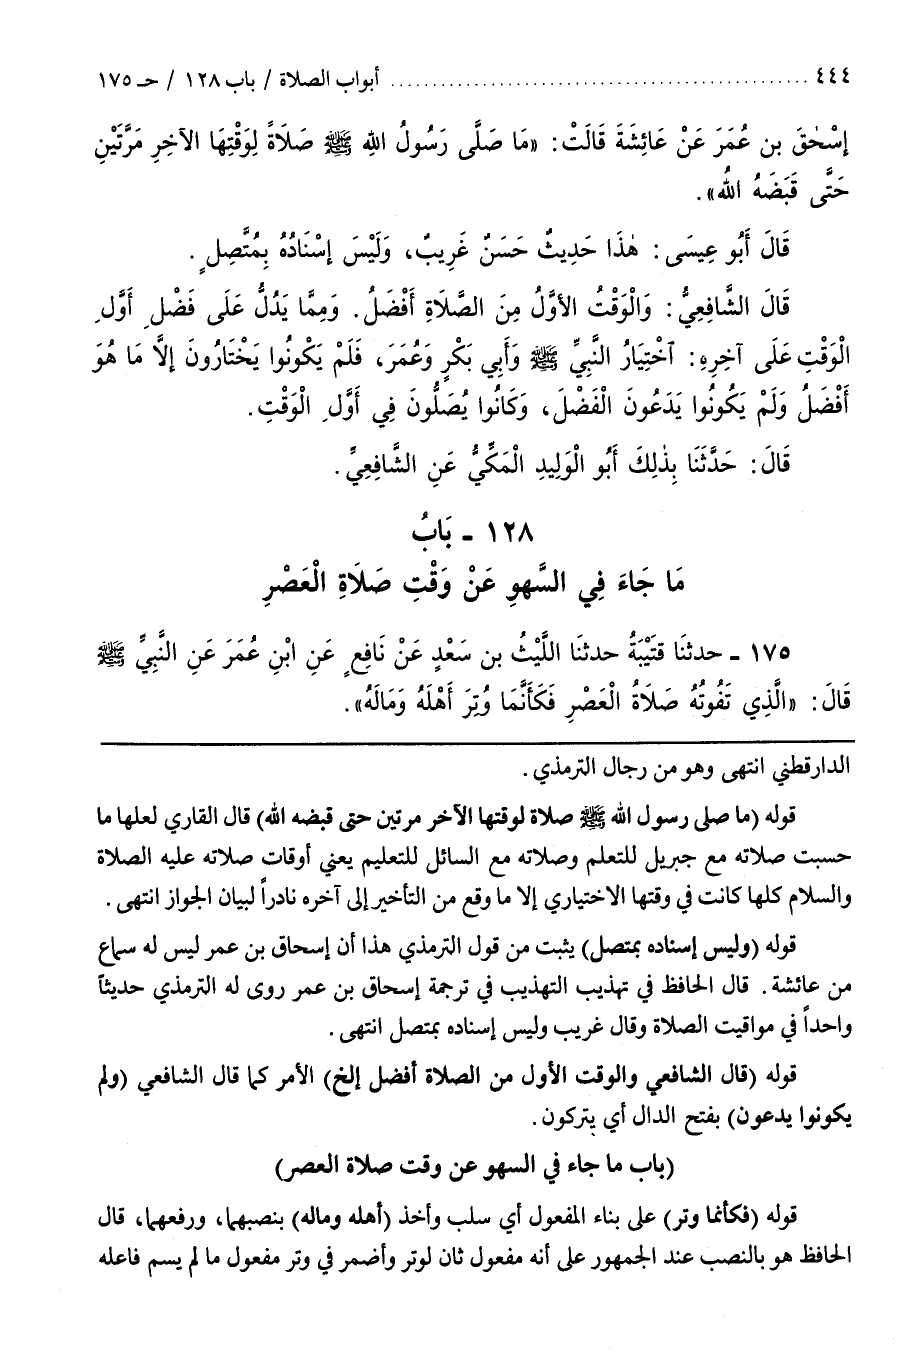 ٤٤٤ ........................................ أبواب الصلاة / باب ١٢٨ / حـ ١٧٥
إِسْحٰقَ بن عُمَرَ عَنْ عَائِشَةَ قَالَتْ: «مَا صَلَّى رَسُولُ اللهِ ﷺ صَلَاةً لِوَقْتِهَا الآخِرِ مَرَّتَيْنِ
حَتَّى قَبَضَهُ اللهُ».
قَالَ أَبُو عِيسَى: هٰذَا حَدِيثٌ حَسَنٌ غَرِيبٌ، وَلَيْسَ إِسْنَادُهُ بِمُتَّصِلٍ.
قَالَ الشَّافِعِيُّ: وَالْوَقْتُ الأوَّلُ مِنَ الصَّلَاةِ أَفْضَلُ. وَمِمَّا يَدُلُّ عَلَى فَضْلِ أَوَّلِ
الْوَقْتِ عَلَى آخِرِهِ: آخْتِيَارُ النَّبِيِّ ﷺ وَأَبِي بَكْرٍ وَعُمَرَ، فَلَمْ يَكُونُوا يَخْتَارُونَ إِلَّا مَا هُوَ
أَفْضَلُ وَلَمْ يَكُونُوا يَدَعُونَ الْفَضْلَ، وَكَانُوا يُصَلُّونَ فِي أَوَّلِ الْوَقْتِ.
قَالَ: حَدَّثَنَا بِذٰلِكَ أَبُو الْوَلِيدِ الْمَكِّيُّ عَنِ الشَّافِعِيِّ.
١٢٨ - بَابُ
مَا جَاءَ فِي السَّهوِ عَنْ وَقْتِ صَلَاةِ الْعَصْرِ
١٧٥ - حدثنَا قتَيْبَةُ حدثنَا اللَّيْثُ بن سَعْدٍ عَنْ نَافِعٍ عَنِ ابْنِ عُمَرَ عَنِ النَّبِيِّ ﷺ
قَالَ: «الَّذِي تَفُوتُهُ صَلَاةُ الْعَصْرِ فَكَأَنَّمَا وُتِرَ أَهْلَهُ وَمَالَهُ».
الدارقطني انتهى وهو من رجال الترمذي.
قوله (ما صلى رسول الله ﷺ صلاة لوقتها الآخر مرتين حتى قبضه الله) قال القاري لعلها ما
حسبت صلاته مع جبريل للتعلم وصلاته مع السائل للتعليم يعني أوقات صلاته عليه الصلاة
والسلام كلها كانت في وقتها الاختياري إلا ما وقع من التأخير إلى آخره نادراً لبيان الجواز انتهى.
قوله (وليس إسناده بمتصل) يثبت من قول الترمذي هذا أن إسحاق بن عمر ليس له سماع
من عائشة. قال الحافظ في تهذيب التهذيب في ترجمة إسحاق بن عمر روى له الترمذي حديثاً
واحداً في مواقيت الصلاة وقال غريب وليس إسناده بمتصل انتهى.
قوله (قال الشافعي والوقت الأول من الصلاة أفضل إلخ) الأمر كما قال الشافعي (ولم
يكونوا يدعون) بفتح الدال أي يتركون.
(باب ما جاء في السهو عن وقت صلاة العصر)
قوله (فكأنما وتر) على بناء المفعول أي سلب وأخذ (أهله وماله) بنصبهما، ورفعهما، قال
الحافظ هو بالنصب عند الجمهور على أنه مفعول ثان لوتر وأضمر في وتر مفعول ما لم يسم فاعله